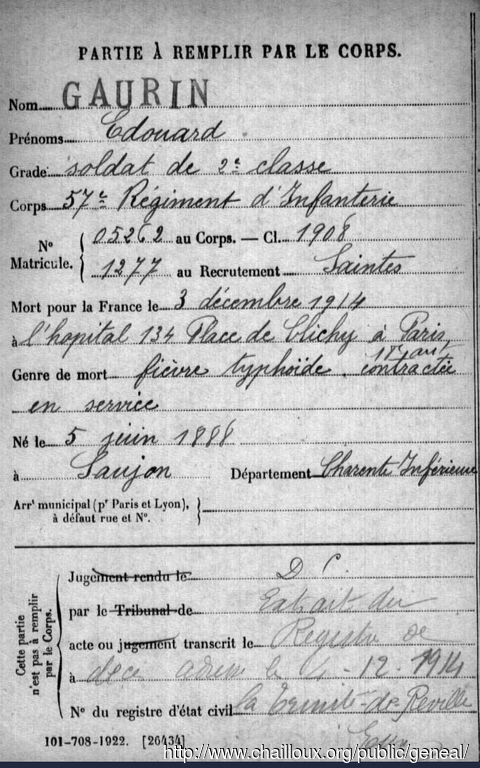 PARTIE À REMPLIR PAR LE CORPS.
Nom GAURIN
Prénoms Edouard
Grade soldat de 2e classe
Corps 57e Régiment d'Infanterie
N° Matricule. { 05262 au Corps. — Cl. 1908
1277 au Recrutement Saintes
Mort pour la France le 3 décembre 1914
à l'hopital 134 Place de Clichy à Paris
Genre de mort fièvre typhoïde contractée
en service
Né le 5 juin 1888
à Saujon Département Charente Inférieure
Arrt municipal (pr Paris et Lyon), à défaut rue et N°. }
Cette partie n'est pas à remplir par le Corps. {
Jugement rendu le
par le Tribunal de Extrait du
acte ou jugement transcrit le Registre de
à décès le - 12 - 1914
N° du registre d'état civil la de Réville
101-708-1922. [26434]
http://www.chailloux.org/public/geneal/